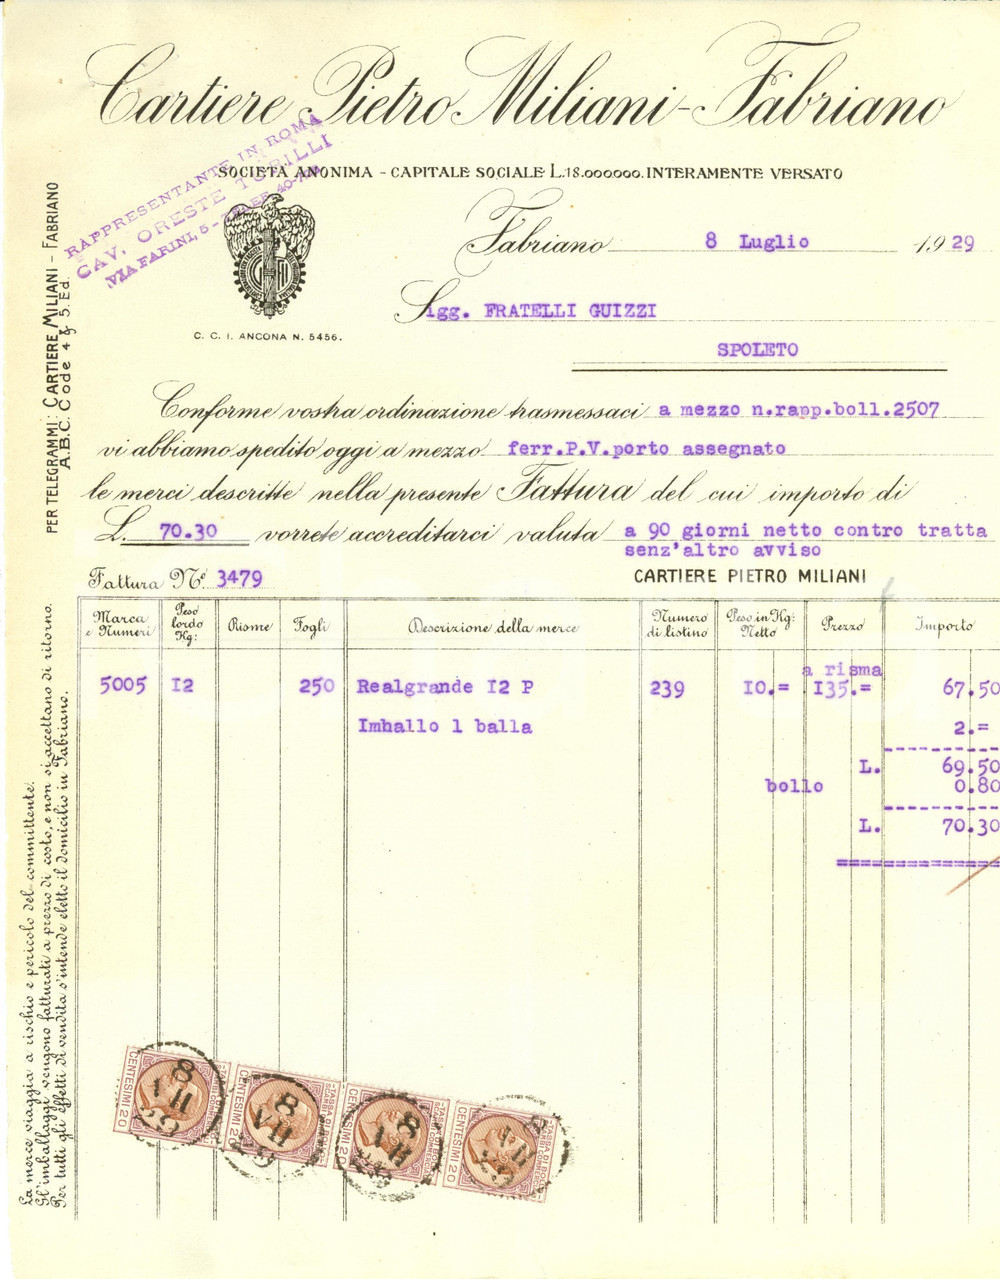 Cartiere Pietro Miliani - Fabriano
SOCIETÀ ANONIMA - CAPITALE SOCIALE L.18.000000. INTERAMENTE VERSATO
RAPPRESENTANTE IN ROMA
CAV. ORESTE TORILLI
VIA FARINI, 5 -
C. C. I. ANCONA N. 5456.
Fabriano 8 Luglio 1929
Sigg. FRATELLI GUIZZI
SPOLETO
PER TELEGRAMMI: CARTIERE MILIANI - FABRIANO
A.B.C. Code 4 & 5. Ed.
Conforme vostra ordinazione trasmessaci a mezzo n.rapp.boll.2507
vi abbiamo spedito oggi a mezzo ferr.P.V.porto assegnato
le merci descritte nella presente Fattura del cui importo di
L. 70.30 vorrete accreditarci valuta a 90 giorni netto contro tratta
senz'altro avviso
Fattura N° 3479 CARTIERE PIETRO MILIANI
Marca e Numeri Peso lordo Kg: Risme Fogli Descrizione della merce Numero di listino Peso in Kg: Netto Prezzo Importo
a risma
5005 I2 250 Realgrande I2 P 239 IO.= I35.= 67.50
Imballo 1 balla 2.=
L. 69.50
bollo 0.80
L. 70.30
La merce viaggia a rischio e pericolo del committente.
Gl'imballaggi vengono fatturati a prezzo di costo, e non si accettano di ritorno.
Per tutti gli effetti di vendita s'intende eletto il domicilio in Fabriano.
CENTESIMI 20
TASSA DI BOLLO
CENTESIMI 20
TASSA DI BOLLO
CENTESIMI 20
TASSA DI BOLLO
CENTESIMI 20
TASSA DI BOLLO
8
VII
29
8
VII
29
8
VII
29
8
VII
29